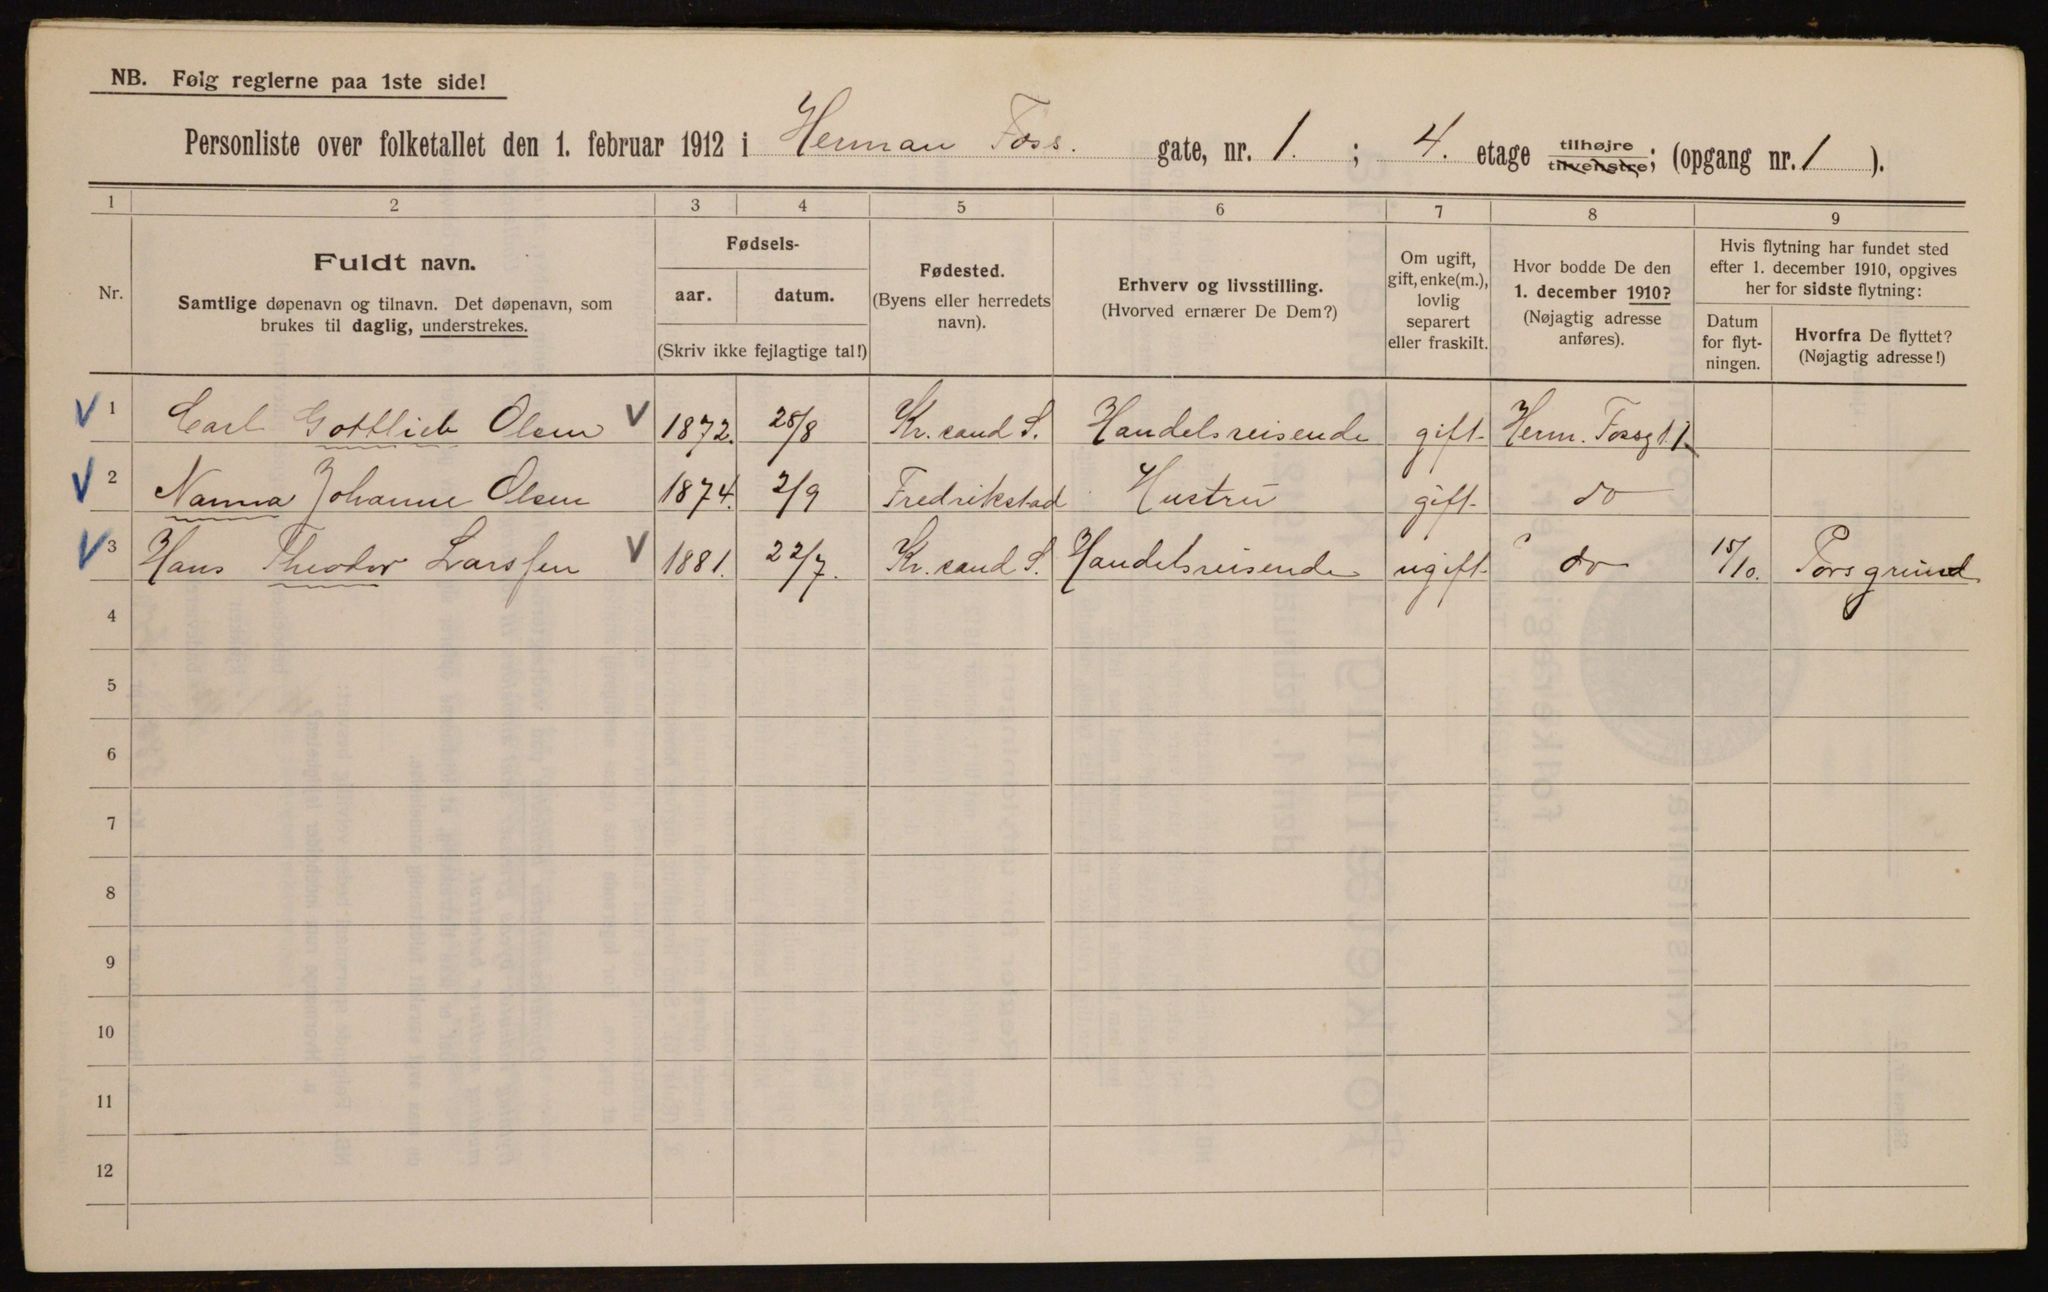 NB. Følg reglerne paa 1ste side!
Personliste over folketallet den 1. februar 1912 i Herman Foss. gate, nr. 1. ; 4. etage tilhøjre tilvenstre; (opgang nr. 1 ).
1 2 3 4 5 6 7 8 9
Nr.
Fuldt navn.
Samtlige døpenavn og tilnavn. Det døpenavn, som
brukes til daglig, understrekes.
Fødsels-
aar. datum.
(Skriv ikke fejlagtige tal!)
Fødested.
(Byens eller herredets
navn).
Erhverv og livsstilling.
(Hvorved ernærer De Dem?)
Om ugift,
gift, enke(m.),
lovlig
separert
eller fraskilt.
Hvor bodde De den
1. december 1910?
(Nøjagtig adresse
anføres).
Hvis flytning har fundet sted
efter 1. december 1910, opgives
her for sidste flytning:
Datum
for flyt-
ningen.
Hvorfra De flyttet?
(Nøjagtig adresse!)
1 Carl Gottlieb Olsen 1872. 28/8 Kr.sand S. Handelsreisende gift Herm. Fossgt. 1
2 Nanna Johanne Olsen 1874. 2/9 Fredrikstad Hustru gift do
3 Hans Theodor Larssen 1881. 22/7. Kr.sand S. Handelsreisende ugift do 15/10. Porsgrund
4
5
6
7
8
9
10
11
12